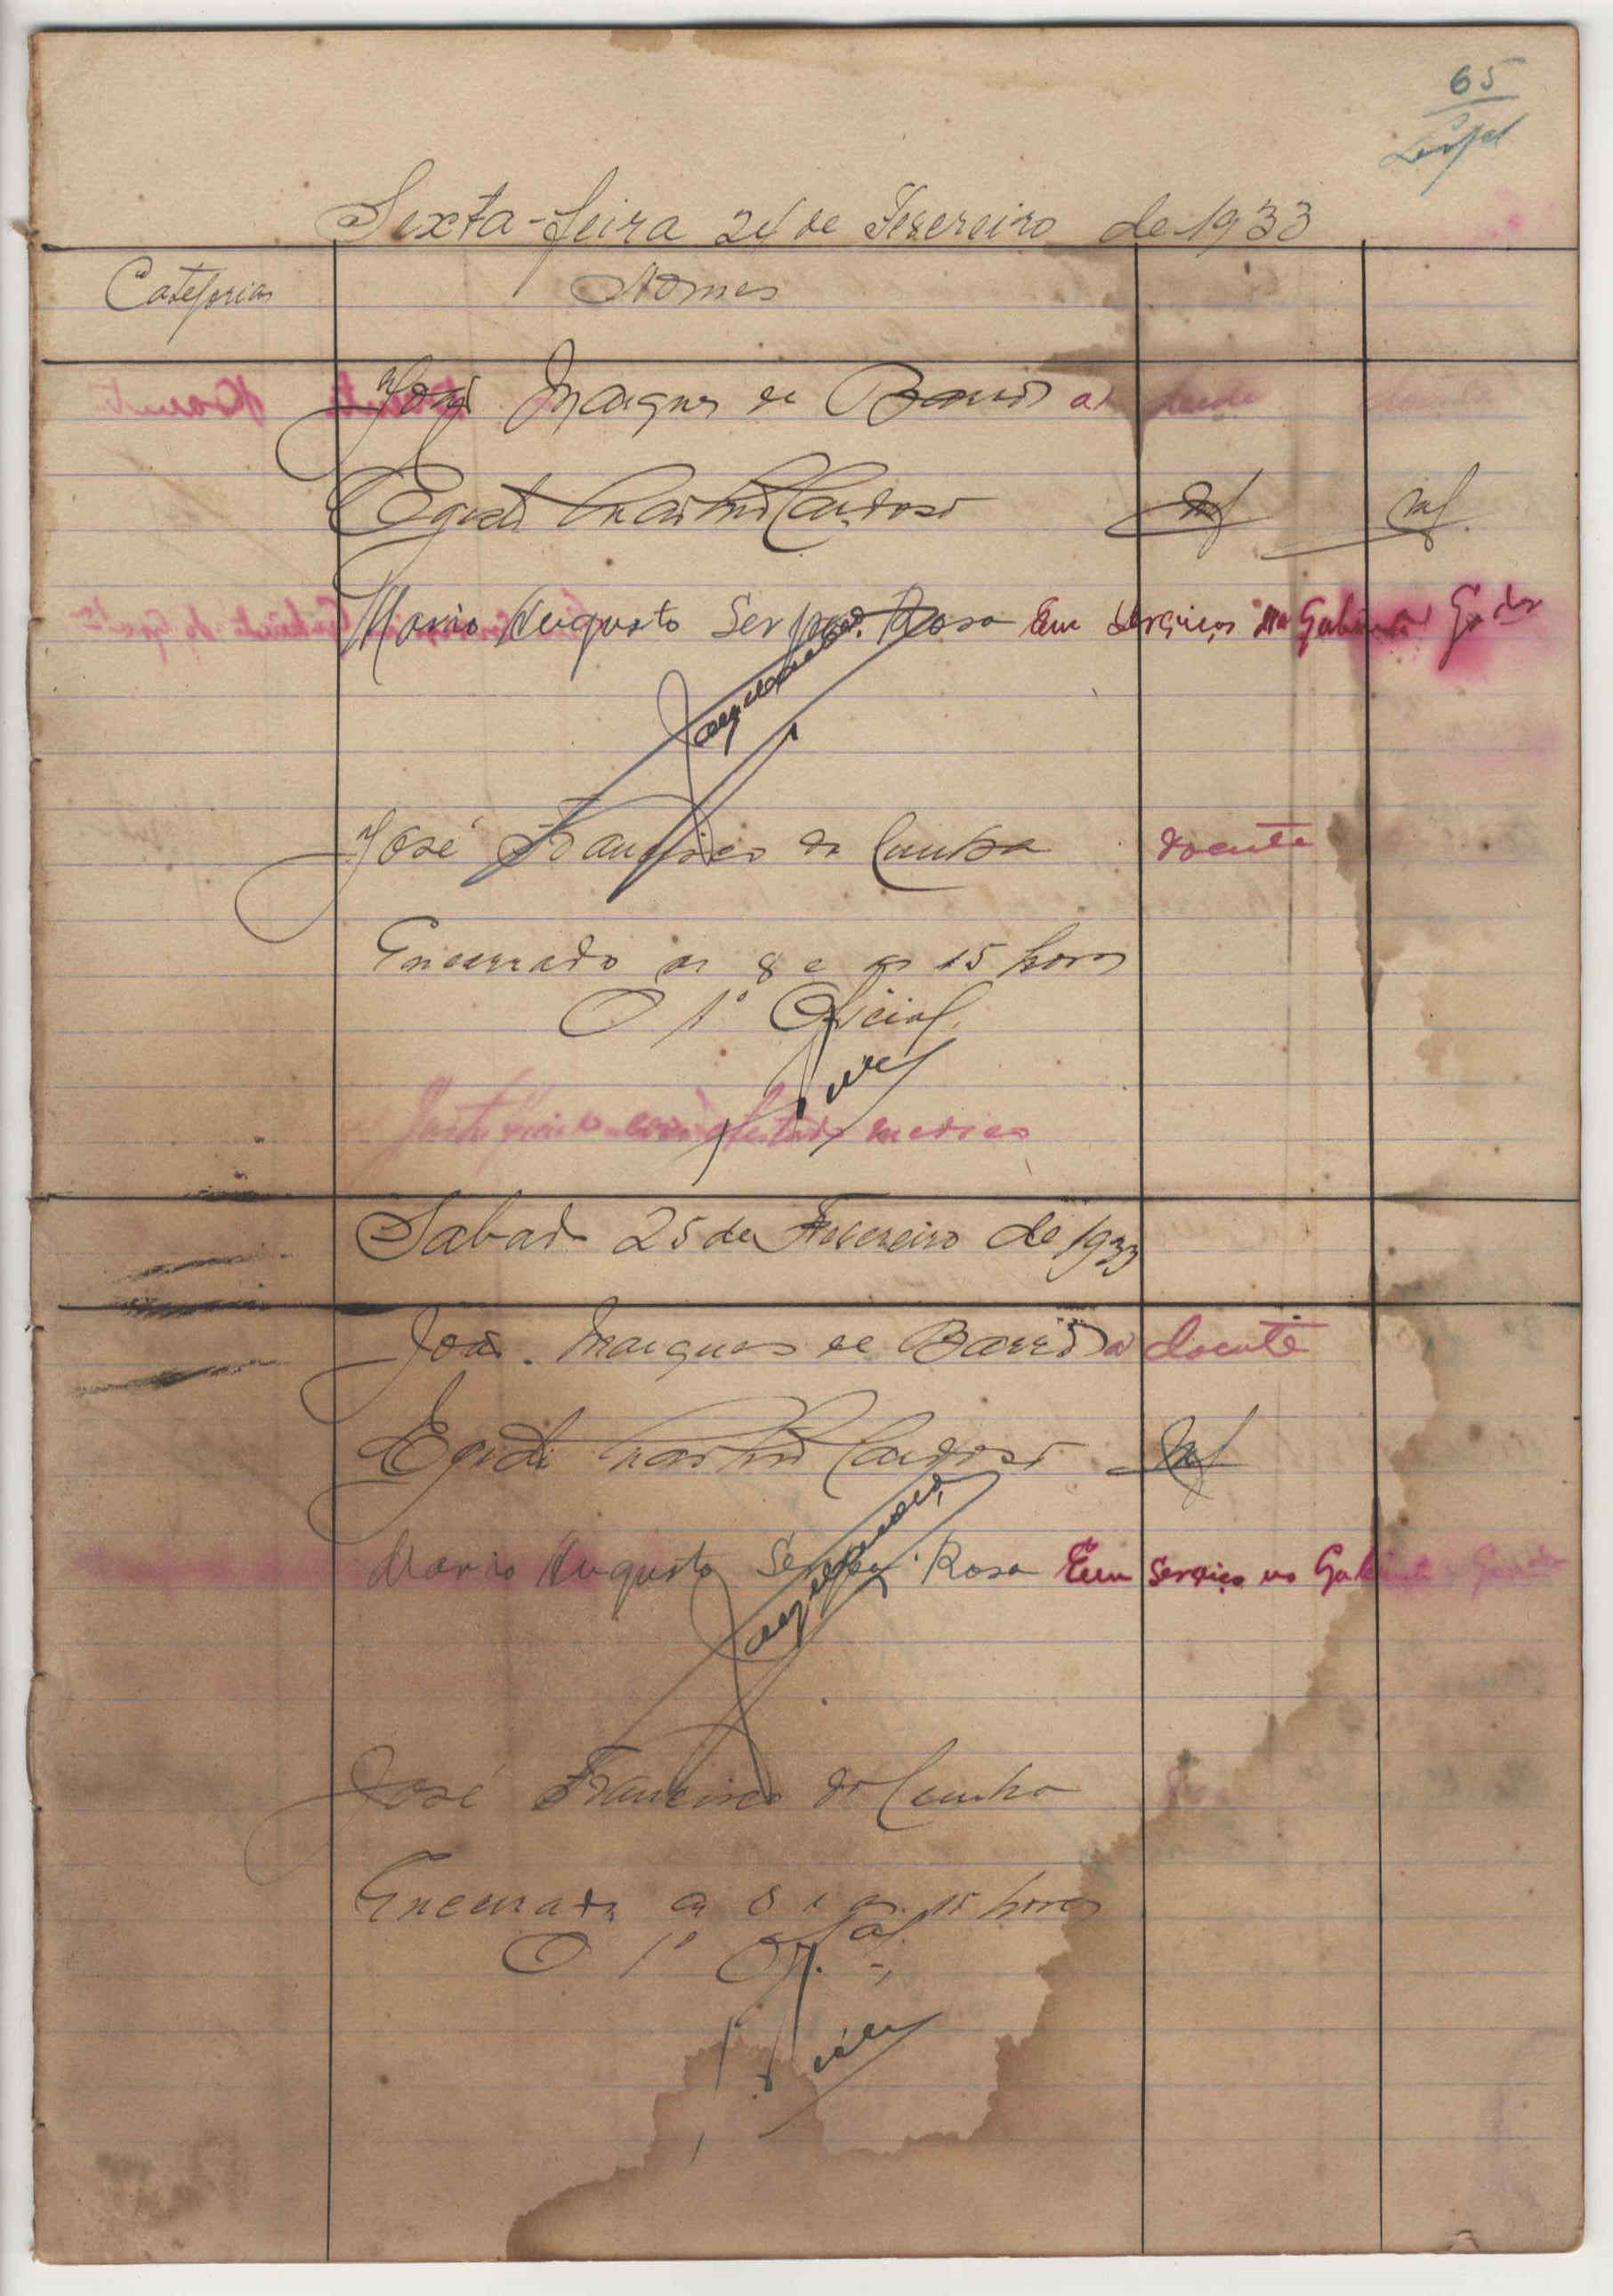 65
Sexta-feira 24 de Fevereiro de 1933
Categorias Nomes
João Marques de Barros doente doente
Egidio Martins Cardoso
Mario Augusto Serpa Rosa Em serviços no Gabinete
José Francisco da Cunha doente
Encerrado as 8 e as 15 horas
O 1º Oficial,
Justificado com atestado medico
Sabado 25 de Fevereiro de 1933
João Marques de Barros doente
Egidio Martins Cardoso
Mario Augusto Serpa Rosa Em serviço no Gabinete
José Francisco da Cunha
Encerrado as 8 e as 15 horas
O 1º Of.al,